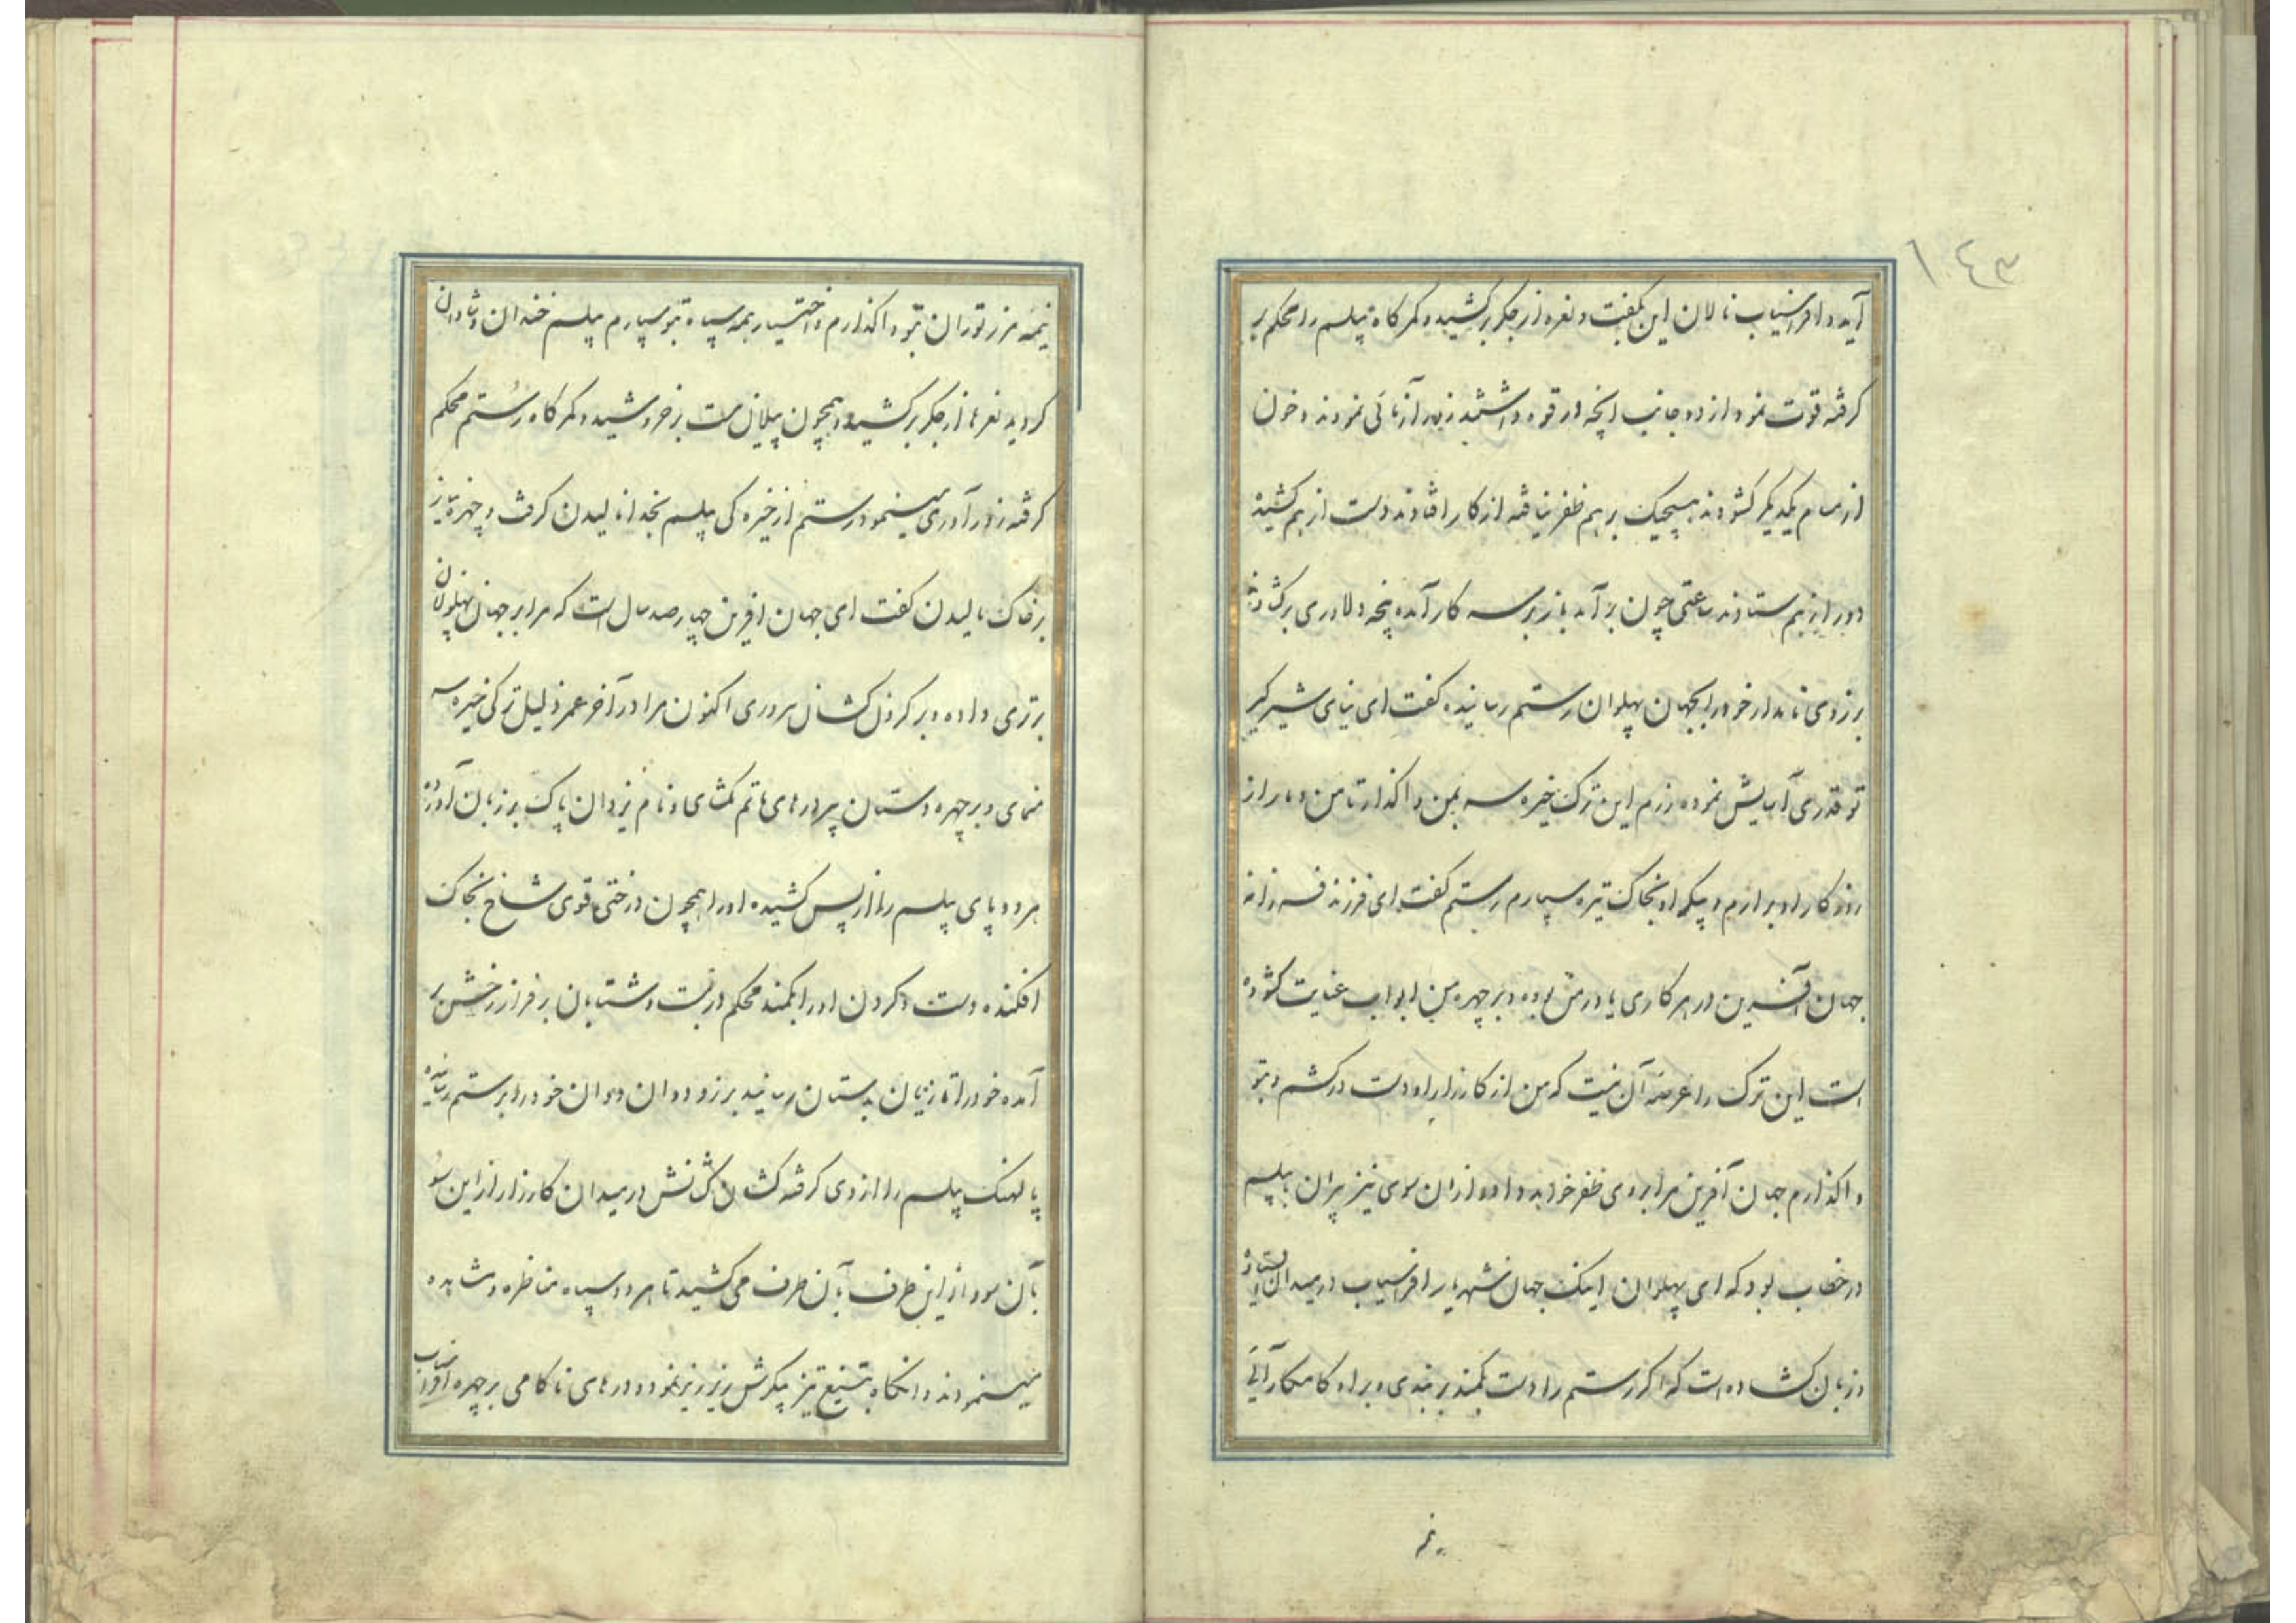 ۱۴۳
آید و افراسیاب نالان این بگفت و نعره از جگر برکشید و کمرگاه پیلسم را محکم بر
گرفته قوت نمود از دو جانب آنچه در قوه داشتند زور آزمائی نمودند و خون
از مسام یکدیگر گشودند هیچیک بر هم ظفر نیافته از کار افتادند دست از هم کشیده
دور از هم ستادند ساعتی چون بر آمد باز بر سر کار آمده پنجه دلاوری برگشادند
برزوی نامدار خود را بجهان پهلوان رستم رسانیده گفت ای نیای شیرگیر
تو قدری آسایش نموده رزم این ترک خیره سر بمن واگذار تا من دمار از
روزگار او برآرم و پیکر او بخاک تیره سپارم رستم گفت ای فرزند فرزانه
جهان آفرین در هر کاری یاور من بوده و بر چهره من ابواب عنایت گشوده
است این ترک را عرضه آن نیست که من از کارزار او دست درکشم و بتو
واگذارم جهان آفرین مرا بر وی ظفر خواهد داد و از آن سوی نیز پیران با پیلسم
در خطاب بود که ای پهلوان اینک جهان شهریار افراسیاب در میدان ایستاده
و زبان گشاده است که اگر رستم را دست بکمند بر بندی و بر او کامکار آئی
نیمه
نیمه مرز توران بتو واگذارم و اختیار همه سپاه بتو سپارم پیلسم خندان و شادان
گردید نعره‌ها از جگر برکشید و همچون پیلان مست برخروشید و کمرگاه رستم محکم
گرفته زور آوری مینمود رستم از خیره‌گی پیلسم بخدا نالیدن گرفت و چهره نیاز
بر خاک مالیدن گفت ای جهان افرین چهارصد سال است که مرا بر جهان پهلوانان
برتری داده و بر گردن کشان سروری اکنون مرا در آخر عمر ذلیل ترکی خیره سر
منمای و بر چهره دستان پیر درهای ماتم مگشای و نام یزدان پاک بر زبان آورده
هر دو پای پیلسم را از پس کشیده او را همچون درختی قوی شاخ بخاک
افکنده دست و گردن او را بکمند محکم در بست و شتابان بر فراز رخش بر
آمده خود را تازیان بدستان رسانید برزو دوان دوان خود را برستم رسانیده
پالهنگ پیلسم را از وی گرفته کشان کشانش در میدان کارزار از این سو
بآن سو و از این طرف بآن طرف می‌کشید تا هر دو سپاه مناظره و مشاهده
مینمودند و آنگاه بتیغ تیز پیکرش ریز ریز نمود و درهای ناکامی بر چهره افراسیاب